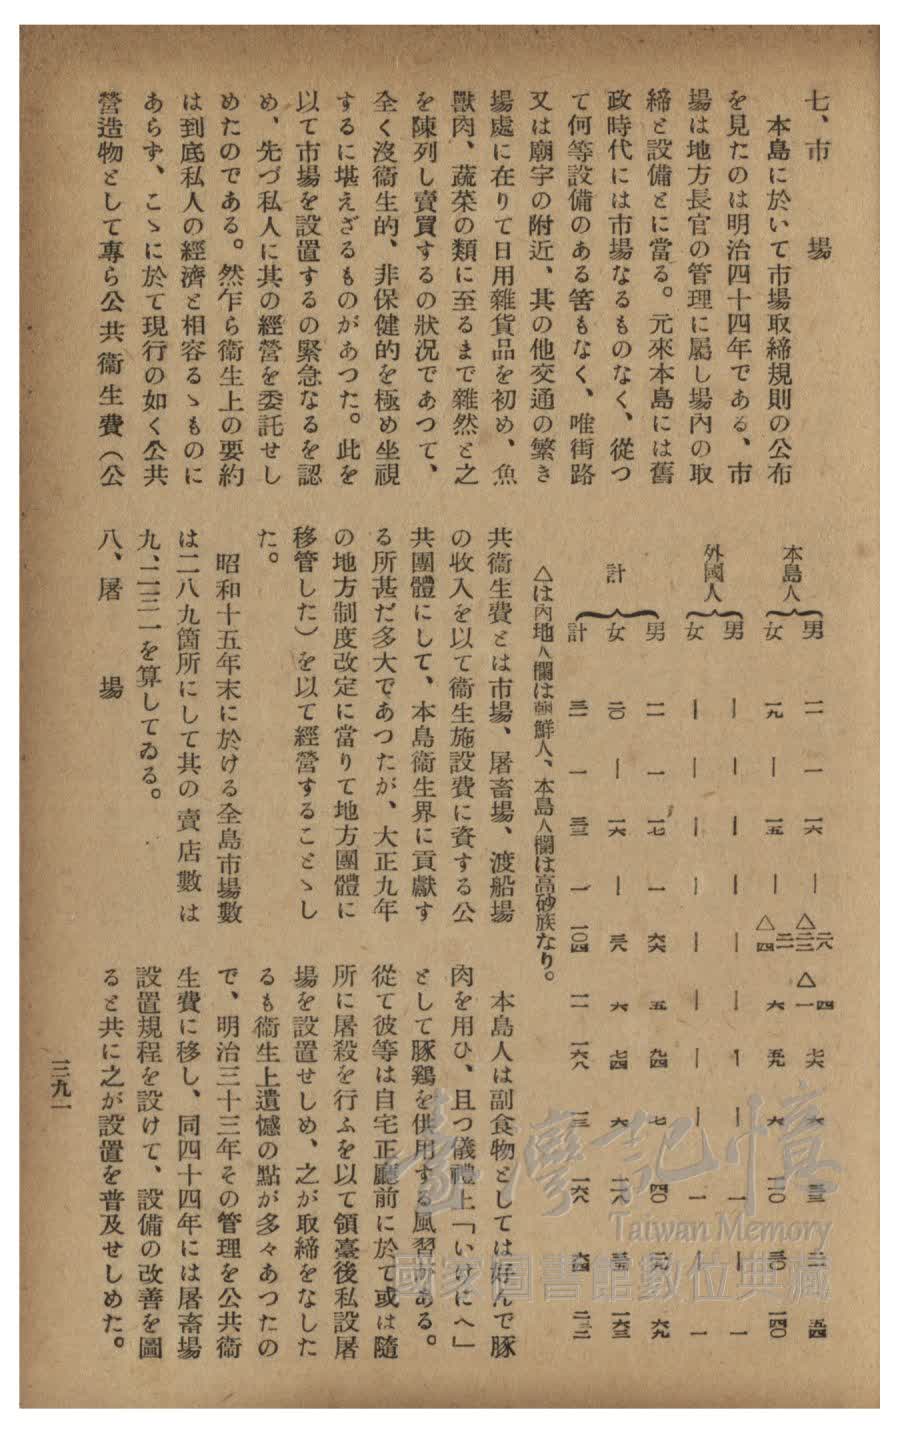 七、市　　場
本島に於いて市場取締規則の公布
を見たのは明治四十四年である、市
場は地方長官の管理に屬し場內の取
締と設備とに當る。元來本島には舊
政時代には市場なるものなく、從つ
て何等設備のある筈もなく、唯街路
又は廟宇の附近、其の他交通の繁き
場處に在りて日用雜貨品を初め、魚
獸肉、蔬菜の類に至るまで雜然と之
を陳列し賣買するの狀況であつて、
全く沒衞生的、非保健的を極め坐視
するに堪えざるものがあつた。此を
以て市場を設置するの緊急なるを認
め、先づ私人に其の經營を委託せし
めたのである。然乍ら衞生上の要約
は到底私人の經濟と相容るゝものに
あらず、こゝに於て現行の如く公共
營造物として專ら公共衞生費（公
本島人
男 一一 一 一六 ｜ 七六 六 二 五四
女 一九 ｜ 一五 ｜ 六 五九 六 三〇 一四〇
外國人
男 ｜ ｜ ｜ ｜ ｜ ｜ ｜ ｜ 一 ｜ 一
女 ｜ ｜ ｜ ｜ ｜ ｜ ｜ ｜ 一 ｜ 一
計
男 一一 一 一七 一 六六 五 九四 七 四〇 二九 六九
女 二〇 ｜ 一六 ｜ 三八 六 七四 六 一二八 三五 一六三
計 三一 一 三三 一 一〇四 一一 一六八 一三 一六八 六四 二三二
△は內地人欄は朝鮮人、本島人欄は高砂族なり。
共衞生費とは市場、屠畜場、渡船場
の收入を以て衞生施設費に資する公
共團體にして、本島衞生界に貢獻す
る所甚だ多大であつたが、大正九年
の地方制度改定に當りて地方團體に
移管した）を以て經營することゝし
た。
昭和十五年末に於ける全島市場數
は二八九箇所にして其の賣店數は
九、二三一を算してゐる。
八、屠　　場
本島人は副食物としては好んで豚
肉を用ひ、且つ儀禮上「いけにへ」
として豚鷄を供用する風習がある。
從て彼等は自宅正廳前に於て或は隨
所に屠殺を行ふを以て領臺後私設屠
場を設置せしめ、之が取締をなした
るも衞生上遺憾の點が多々あつたの
で、明治三十三年その管理を公共衞
生費に移し、同四十四年には屠畜場
設置規程を設けて、設備の改善を圖
ると共に之が設置を普及せしめた。
三九一
臺灣記憶
Taiwan Memory
國家圖書館數位典藏